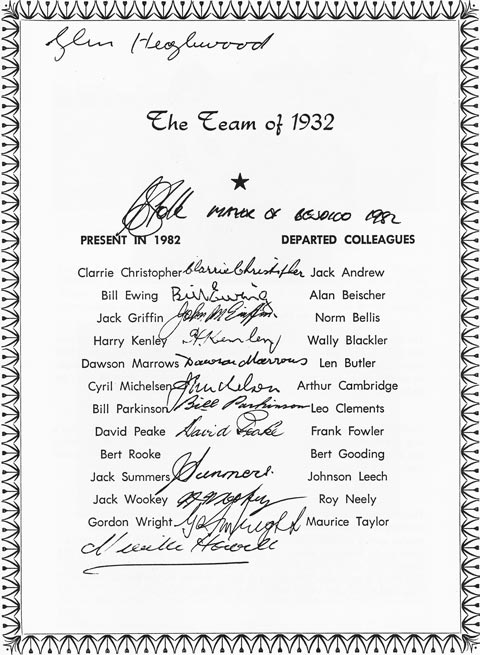 Glen Hazelwood
The Team of 1932
MAYOR OF BENDIGO 1982
PRESENT IN 1982 DEPARTED COLLEAGUES
Clarrie Christopher Clarrie Christopher Jack Andrew
Bill Ewing Bill Ewing Alan Beischer
Jack Griffin John McGriffin Norm Bellis
Harry Kenley H. Kenley Wally Blackler
Dawson Marrows Dawson Marrows Len Butler
Cyril Michelsen Michelsen Arthur Cambridge
Bill Parkinson Bill Parkinson Leo Clements
David Peake David Peake Frank Fowler
Bert Rooke Bert Gooding
Jack Summers J Summers. Johnson Leech
Jack Wookey Roy Neely
Gordon Wright Wright Maurice Taylor
Neville Howell